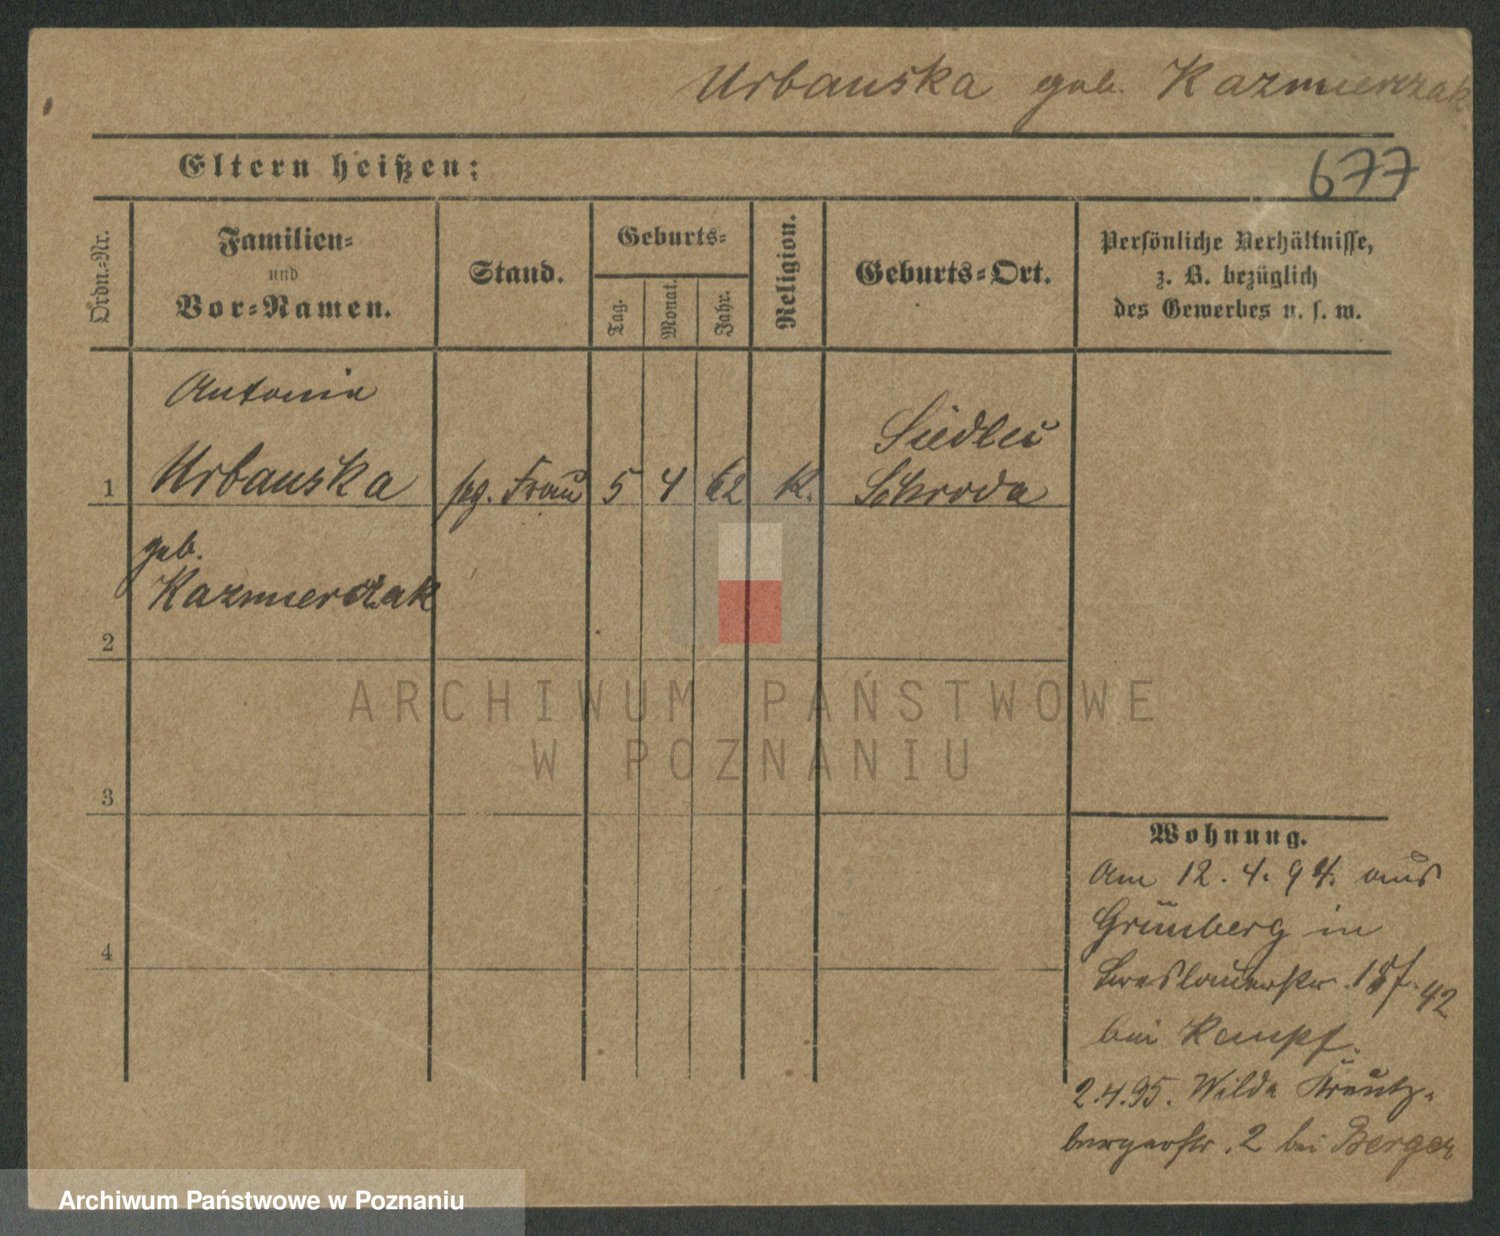 Urbanska geb. Kazmierczak
Eltern heißen:
677
Ordn.-Nr.
Familien-
und
Vor-Namen.
Stand.
Geburts-
Tag.
Monat.
Jahr.
Religion.
Geburts-Ort.
Persönliche Verhältnisse,
z. B. bezüglich
des Gewerbes u. s. w.
Antonie
1 Urbanska Frau 5 4 62 K. Siedlec
Schroda
geb.
Kazmierczak
2
3
4
ARCHIWUM PAŃSTWOWE
W POZNANIU
Wohnung.
Am 12.4.94. aus
Grünberg in
Breslauerstr.
bei Kempf.
2.4.95. Wilda Kreutz-
bergerstr. 2 bei Berger
Archiwum Państwowe w Poznaniu